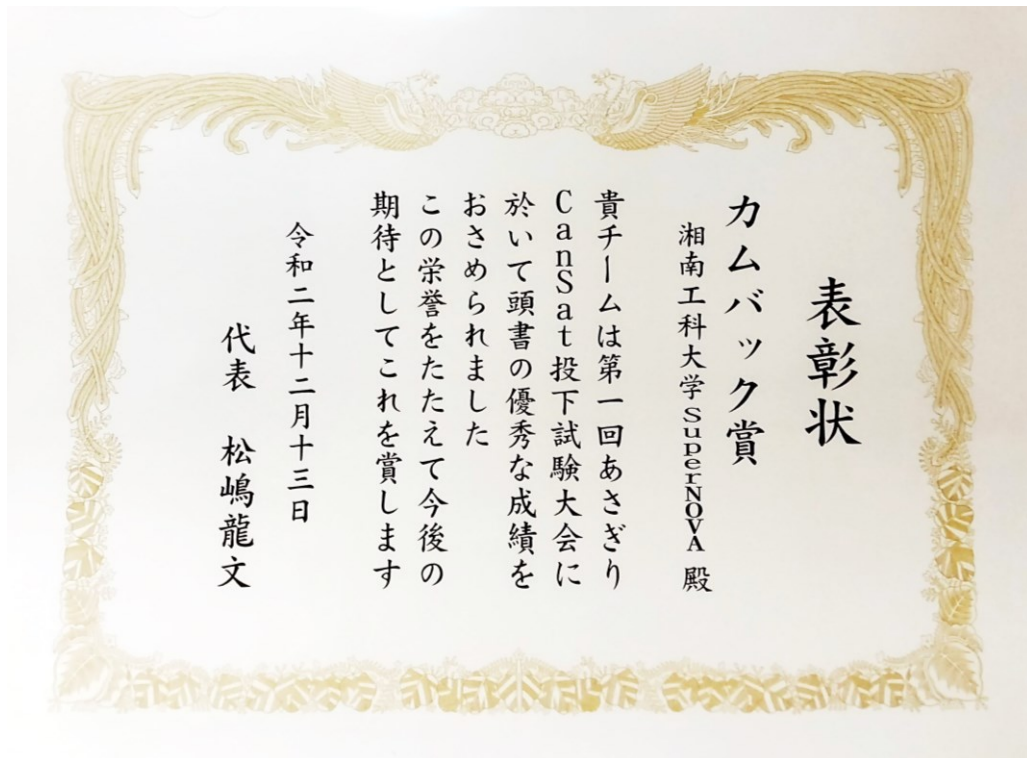 表彰状
カムバック賞
湘南工科大学SuperNOVA 殿
貴チームは第一回あさぎり
CanSat投下試験大会に
於いて頭書の優秀な成績を
おさめられました
この栄誉をたたえて今後の
期待としてこれを賞します
令和二年十二月十三日
代表 松嶋龍文